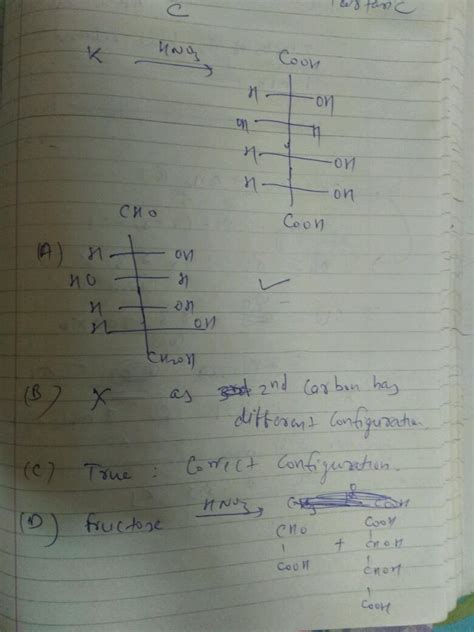 C
K HNO3 COOH
H OH
OH H
H OH
H OH
COOH
CHO
(A) H OH
HO H ✓
H OH
H OH
CH2OH
(B) X as 2nd Carbon has
different configuration
(C) True : Correct Configuration.
(D) fructose HNO3
CHO COOH
COOH + CHOH
CHOH
COOH